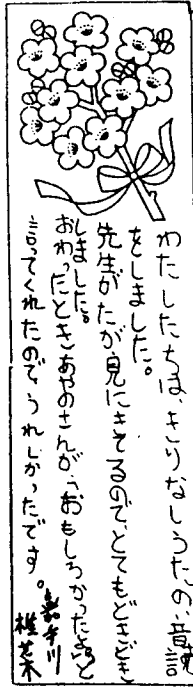 わたしたちは、きりなしうたの、音読
をしました。
先生がたが見にきてるので、とてもどきどき
しました。
おわったときあやのさんが、「おもしろかったよ。」と
言ってくれたので、うれしかったです。